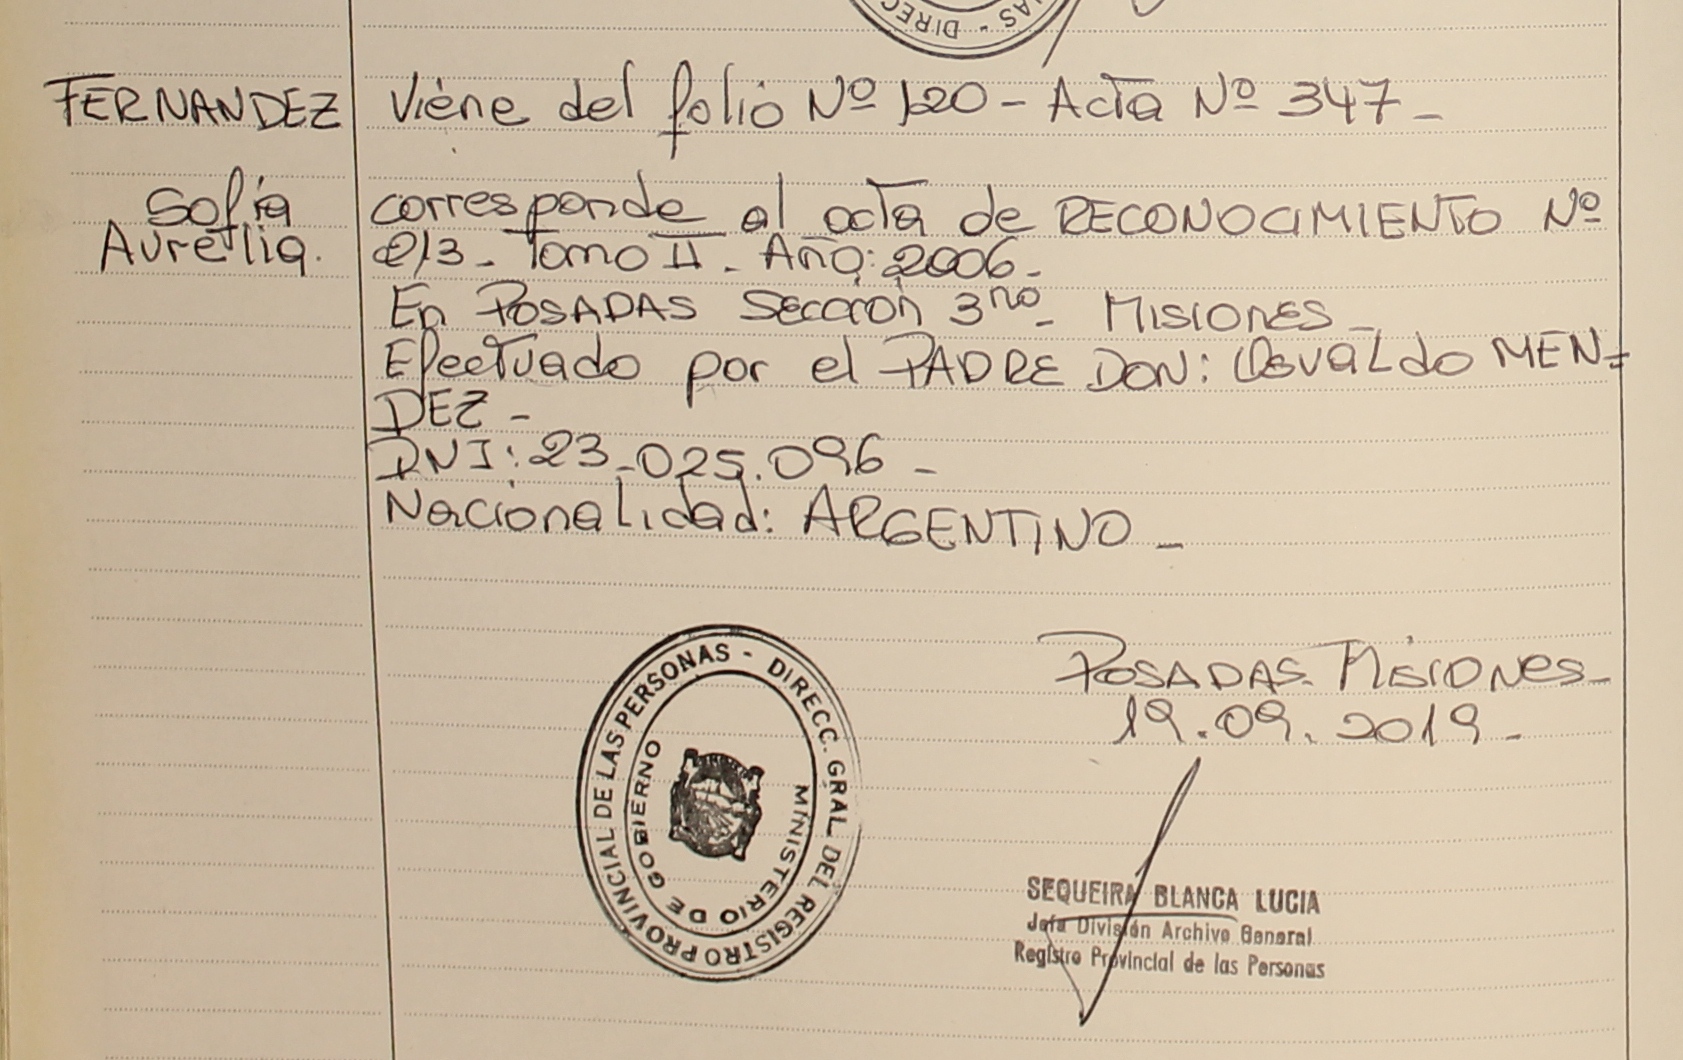 DIREC
FERNANDEZ Viene del folio Nº 120 - Acta Nº 347 -
Sofía corresponde al acta de RECONOCIMIENTO Nº
Aurelia. 213 - Tomo II - Año: 2006 -
En POSADAS Sección 3ra - MISIONES -
Efectuado por el PADRE DON: OsvaLdo MEN=
DEZ -
DNI: 23.025.096 -
Nacionalidad: ARGENTINO -
POSADAS. MISIONES -
19.09.2019 -
DIRECC. GRAL. DEL REGISTRO PROVINCIAL DE LAS PERSONAS -
MINISTERIO DE GOBIERNO
SEQUEIRA BLANCA LUCIA
Jefa División Archivo General
Registro Provincial de las Personas